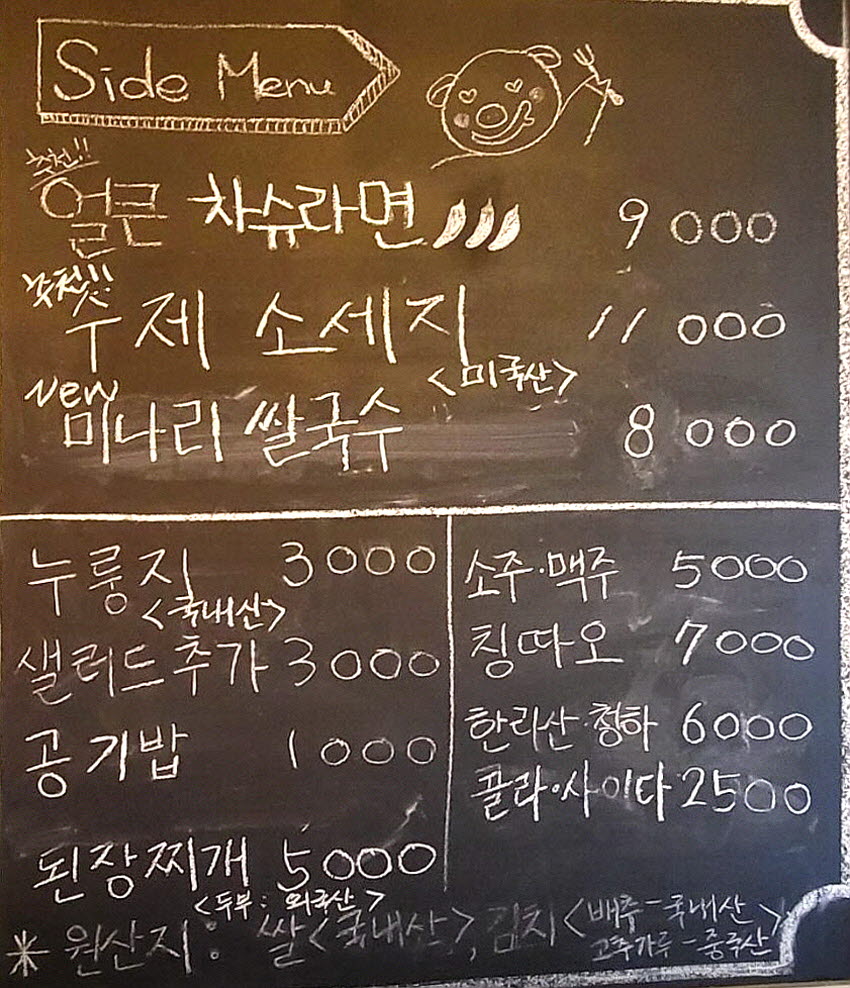 Side Menu
추천!!
얼큰 차슈라면 9000
추천!!
수제 소세지 11000
<미국산>
New
미나리 쌀국수 8000
누룽지 3000
<국내산>
샐러드추가 3000
공기밥 1000
된장찌개 5000
<두부: 외국산>
소주·맥주 5000
칭따오 7000
한라산·청하 6000
콜라·사이다 2500
※ 원산지: 쌀<국내산>, 김치<배추-국내산
고추가루-중국산>